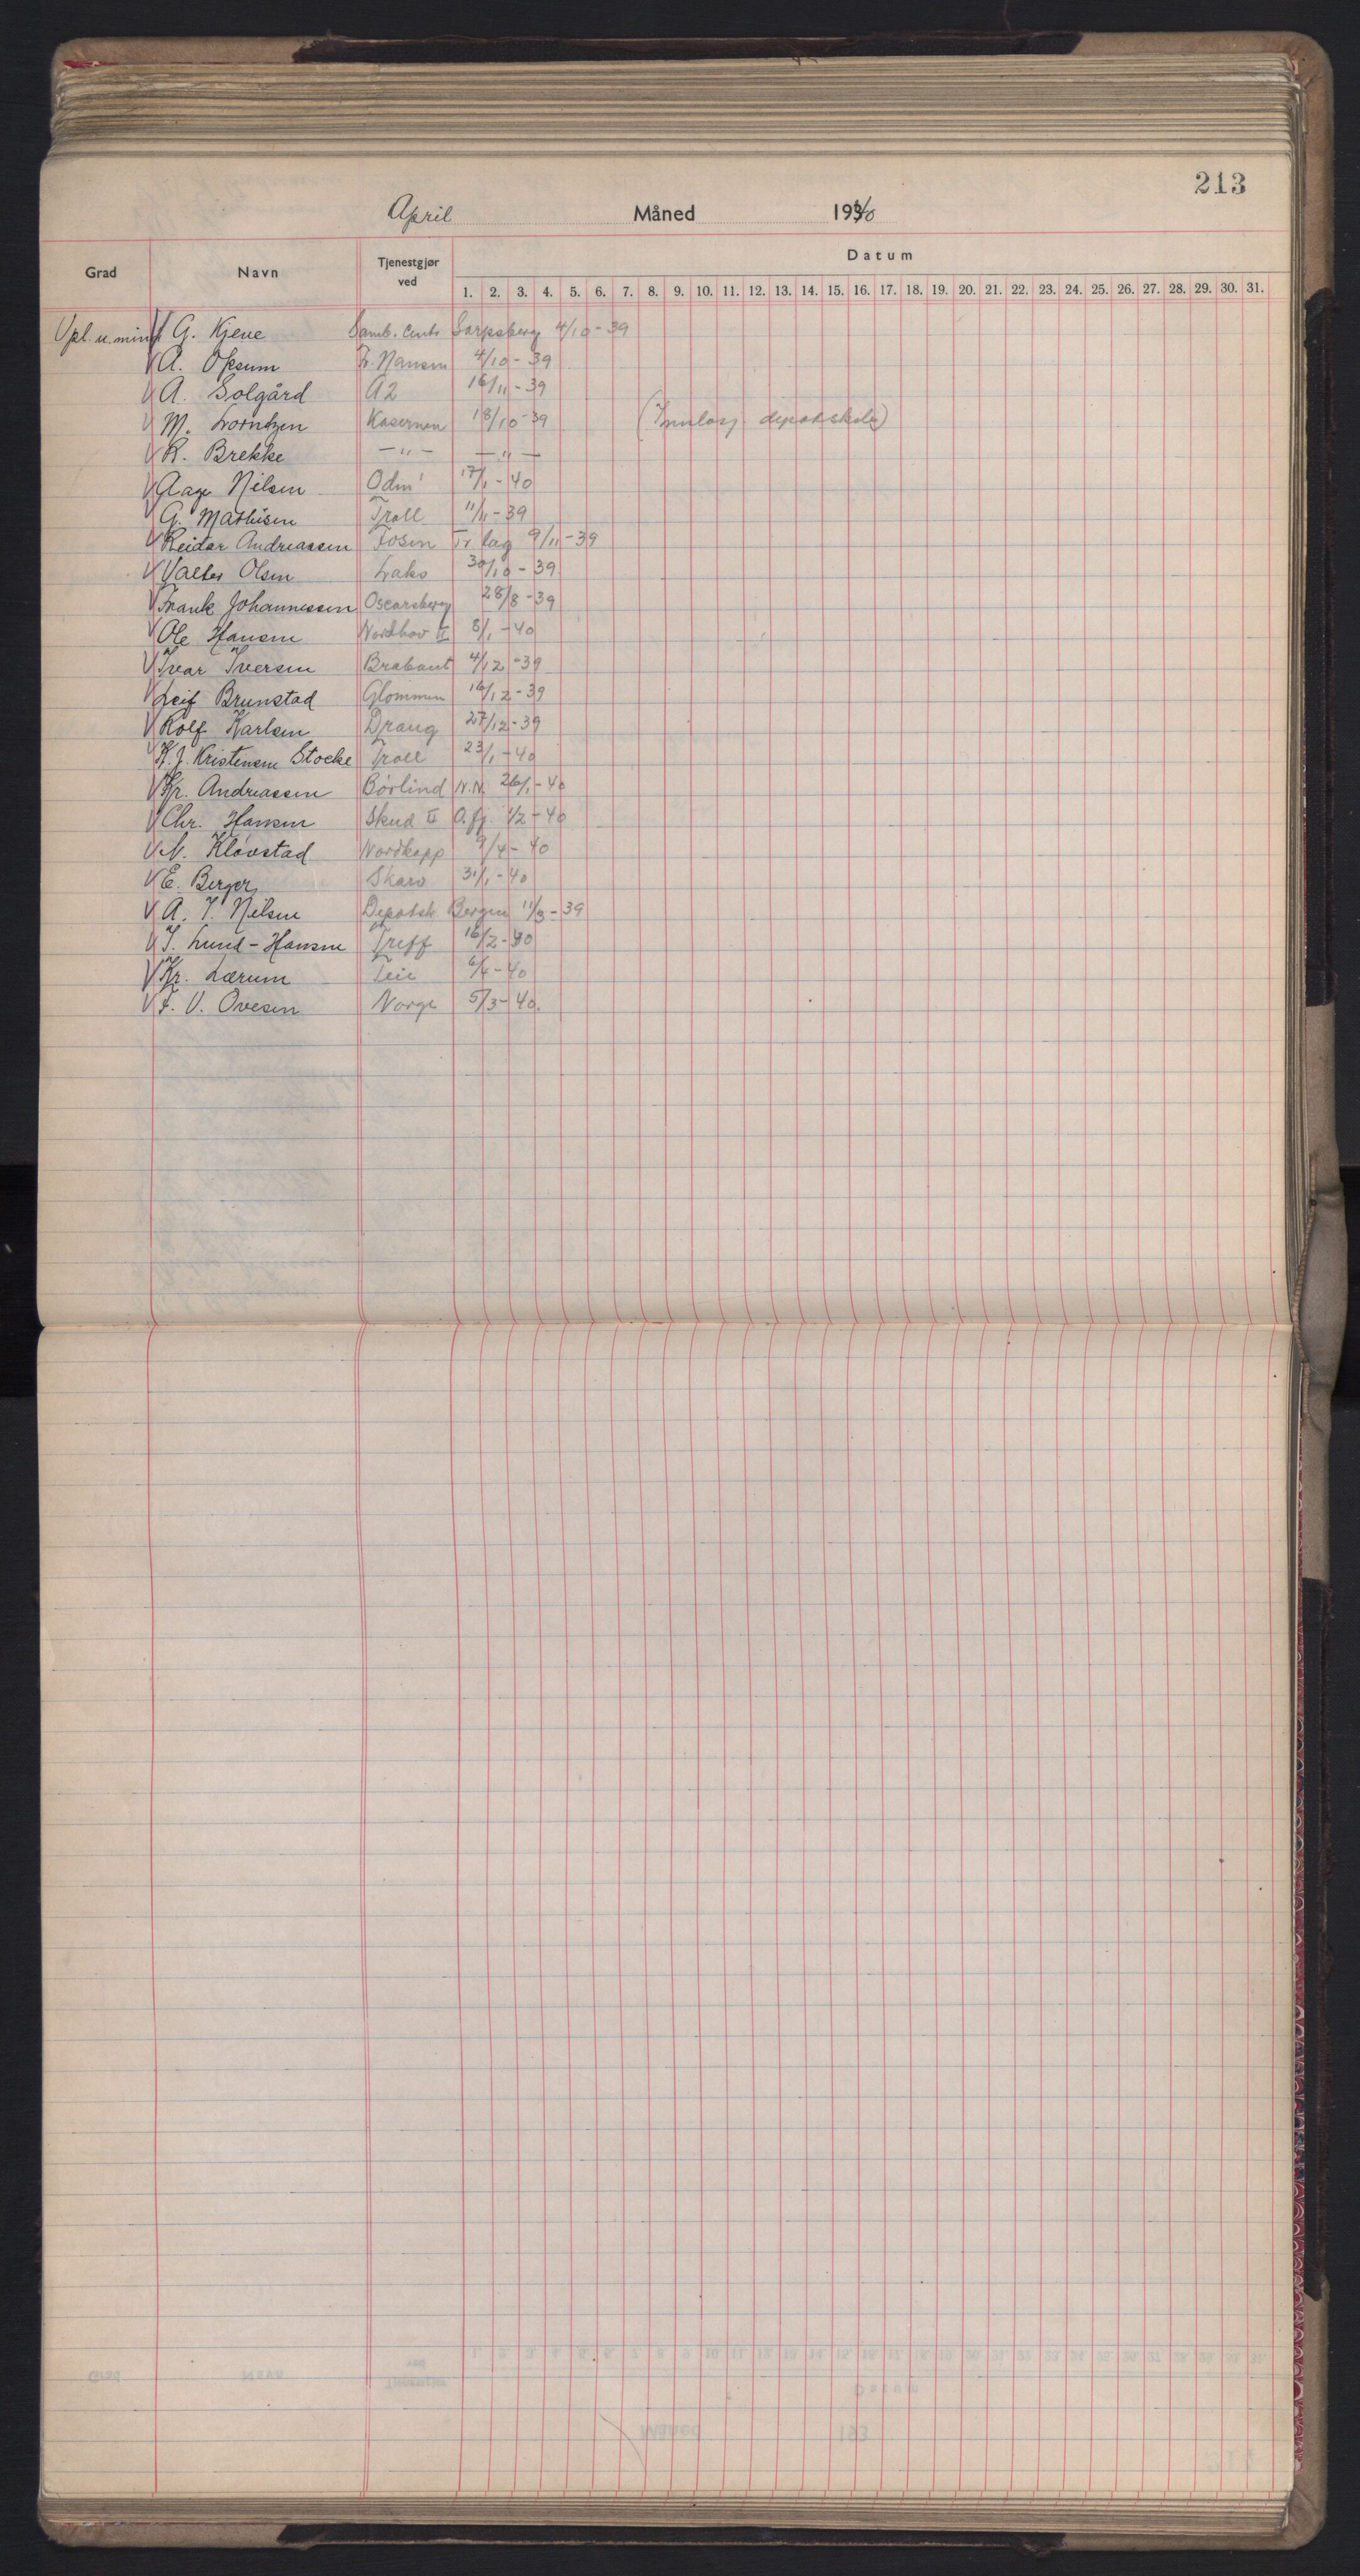 213
April Måned 1940
Grad Navn Tjenestgjør ved Datum
1. 2. 3. 4. 5. 6. 7. 8. 9. 10. 11. 12. 13. 14. 15. 16. 17. 18. 19. 20. 21. 22. 23. 24. 25. 26. 27. 28. 29. 30. 31.
Vpl. u. min V G. Kjene Samb. Centr Sarpsborg 4/10-39
V A. Opsum Fr. Nansen 4/10-39
V A. Solgård A2 16/11-39
V M. Lorntzen Kasernen 18/10-39 (Innlosj. depotskole)
V R. Brekke —"— —"—
V Aage Nilsen Odin 17/1-40
V G. Mathisen Troll 11/11-39
V Reidar Andreassen Fosen Tr. lag 9/11-39
V Valter Olsen Lako 30/10-39
V Frank Johannessen Oscarsborg 28/8-39
V Ole Hansen Nordhav II 8/1-40
V Ivar Iversen Brabant 4/12-39
V Leif Brunstad Glommen 16/12-39
V Rolf Karlsen Draug 27/12-39
V K. J. Kristensen Stocke Troll 23/1-40
V Kr. Andreassen Børlind N.N. 26/1-40
V Chr. Hansen Skud II O.fj. 1/2-40
V N. Kløvstad Nordkapp 9/4-40
V E. Berger Skarv 31/1-40
V A. T. Nilsen Depotsk Bergen 11/3-39
V T. Lund-Hansen Treff 16/2-40
V Kr. Lærum Teie 6/4-40
V F. V. Ovesen Norge 5/3-40.